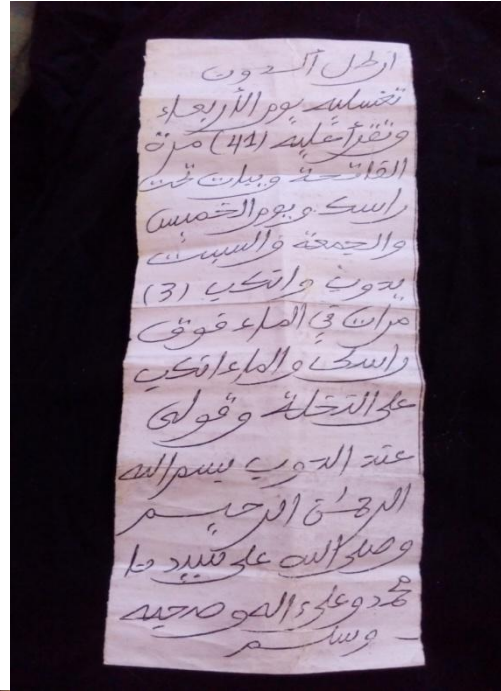 ارطل الدون
تغسليه يوم الأربعاء
وتقرأ عليه (41) مرة
الفاتحة ويبات تحت
راسك ويوم الخميس
والجمعة والسبت
يدوب واتكب (3)
مرات في الماء فوق
راسك والماء اتكب
على الدخلة وقولي
عند الدوب بسم الله
الرحمن الرحيم
وصلى الله على سيدنا
محمد وعلى اله وصحبه
وسلم